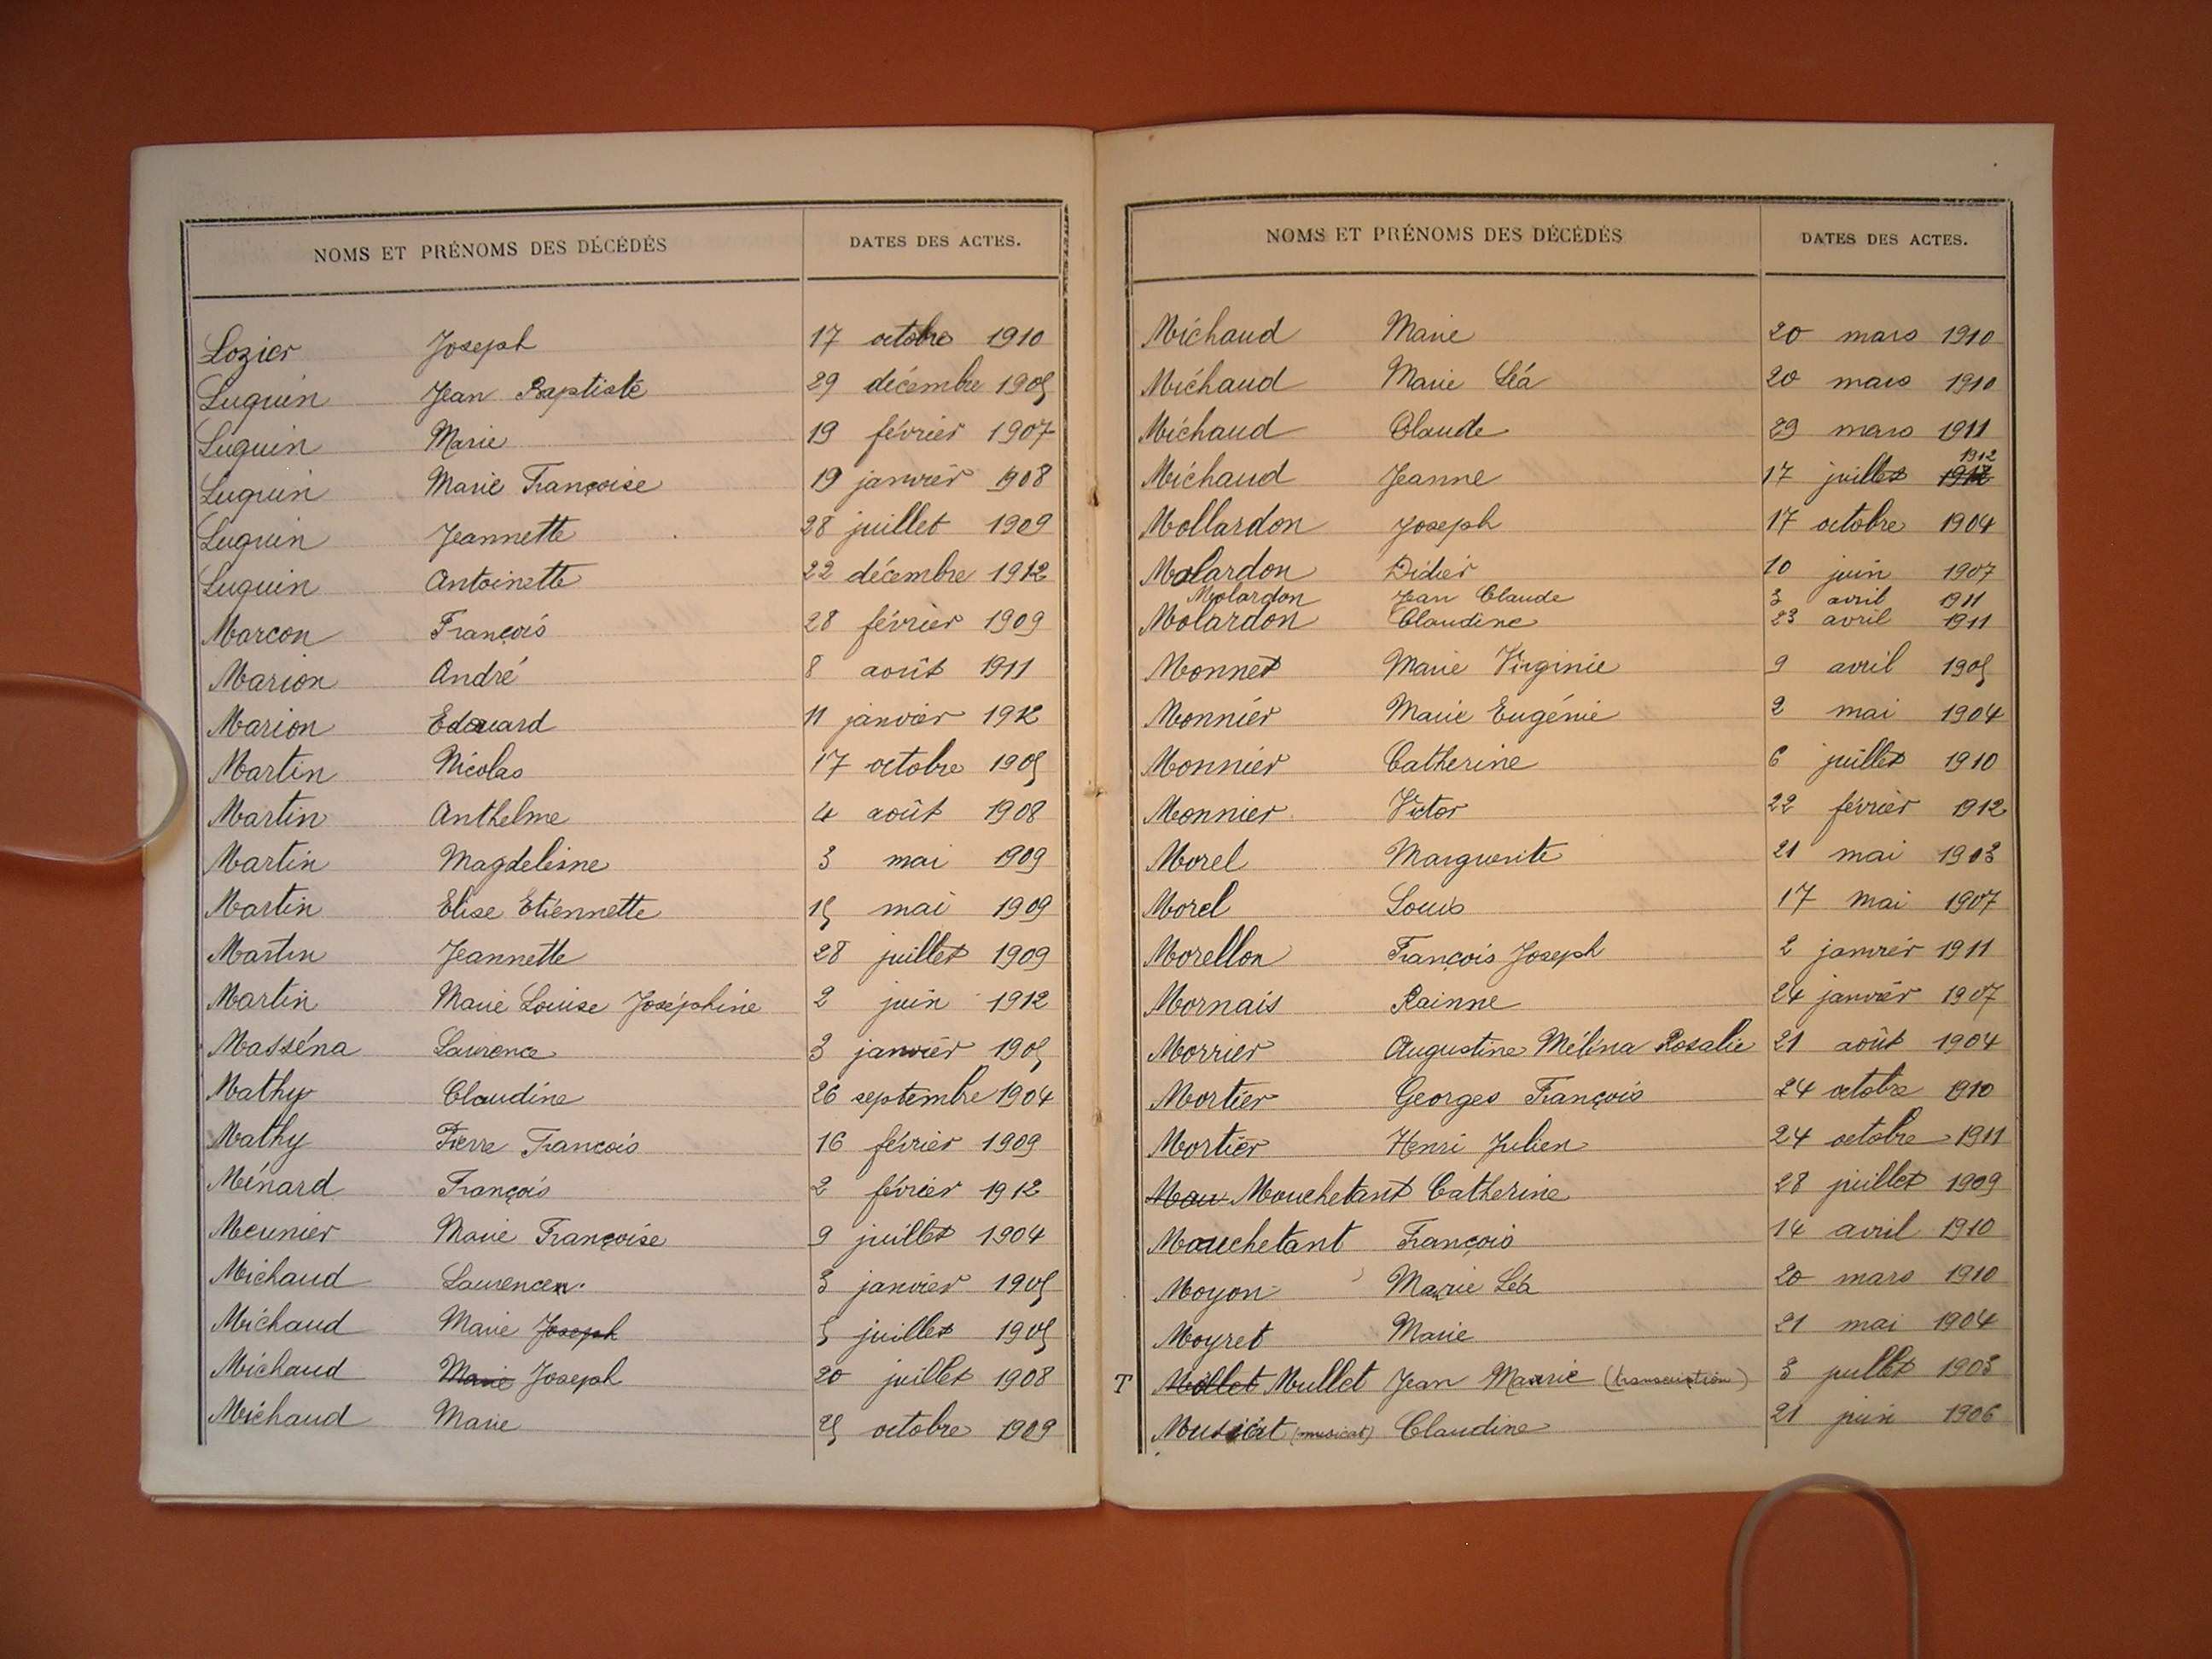 NOMS ET PRÉNOMS DES DÉCÉDÉS DATES DES ACTES.
Lozier Joseph 17 octobre 1910
Luquin Jean Baptiste 29 décembre 1905
Luquin Marie 19 février 1907
Luquin Marie Françoise 19 janvier 1908
Luquin Jeannette 28 juillet 1909
Luquin Antoinette 22 décembre 1912
Marcon François 28 février 1909
Marion André 8 août 1911
Marion Edouard 11 janvier 1912
Martin Nicolas 17 octobre 1905
Martin Anthelme 4 août 1908
Martin Magdeleine 3 mai 1909
Martin Elise Etiennette 15 mai 1909
Martin Jeannette 28 juillet 1909
Martin Marie Louise Joséphine 2 juin 1912
Masséna Laurence 3 janvier 1905
Mathy Claudine 26 septembre 1904
Mathy Pierre François 16 février 1909
Ménard François 2 février 1912
Meunier Marie Françoise 9 juillet 1904
Michaud Laurence 3 janvier 1905
Michaud Marie Joseph 5 juillet 1905
Michaud Marie Joseph 20 juillet 1908
Michaud Marie 25 octobre 1909
NOMS ET PRÉNOMS DES DÉCÉDÉS DATES DES ACTES.
Michaud Marie 20 mars 1910
Michaud Marie Léa 20 mars 1910
Michaud Claude 29 mars 1911
Michaud Jeanne 17 juillet 1912
Mollardon Joseph 17 octobre 1904
Molardon Didier 10 juin 1907
Molardon Jean Claude 3 avril 1911
Molardon Claudine 23 avril 1911
Monnet Marie Virginie 9 avril 1905
Monnier Marie Eugénie 2 mai 1904
Monnier Catherine 6 juillet 1910
Monnier Victor 22 février 1912
Morel Marguerite 21 mai 1903
Morel Louis 17 mai 1907
Morellon François Joseph 2 janvier 1911
Mornais Rainne 24 janvier 1907
Morrier Augustine Mélina Rosalie 21 août 1904
Mortier Georges François 24 octobre 1910
Mortier Henri Julien 24 octobre 1911
Mou Mouchetant Catherine 28 juillet 1909
Mouchetant François 14 avril 1910
Moyon Marie Léa 20 mars 1910
Moyret Marie 21 mai 1904
T Mollet Mullet Jean Marie (transcription) 3 juillet 1903
Musicat (musicat) Claudine 21 juin 1906